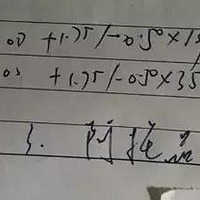 OD +1.75/-0.50×15
OS +1.75/-0.50×35
3.